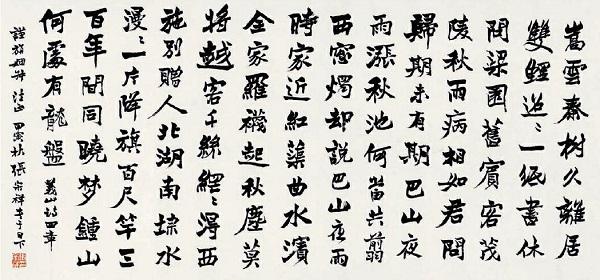 嵩雲秦樹久離居
雙鯉迢〻一紙書休
問梁園舊賓客茂
陵秋雨病相如君問
歸期未有期巴山夜
雨漲秋池何當共翦
西窗燭却說巴山夜雨
時家近紅蕖曲水濱
全家羅襪起秋塵莫
將越客千絲網〻得西
施別贈人北湖南埭水
漫〻一片降旗百尺竿三
百年間同曉夢鍾山
何處有龍盤 義山詩四章
法正 張宗祥